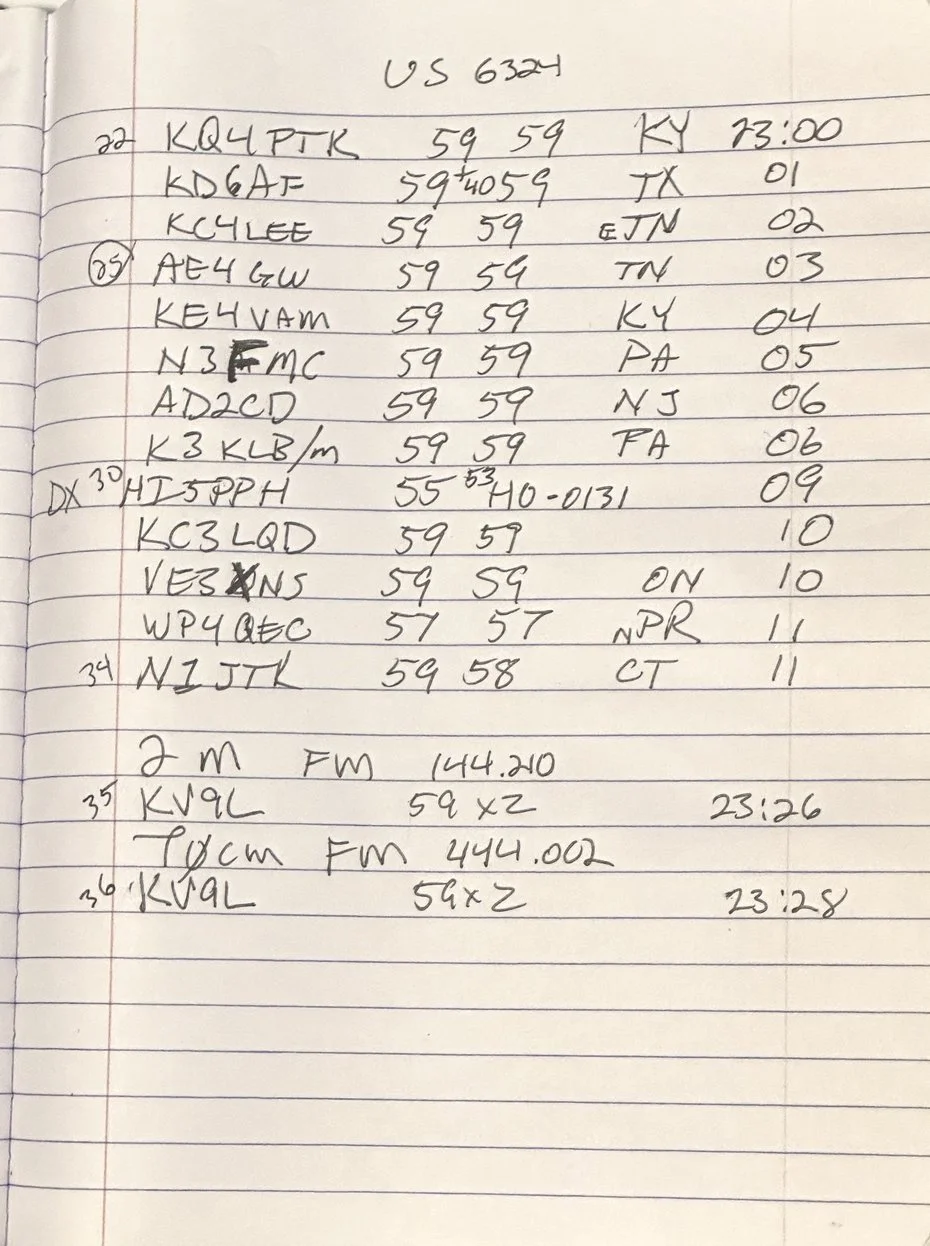 US 6324
22 KQ4PTK 59 59 KY 23:00
KD6AF 59+40 59 TX 01
KC4LEE 59 59 ETN 02
25 AE4GW 59 59 TN 03
KE4VAM 59 59 KY 04
N3FMC 59 59 PA 05
AD2CD 59 59 NJ 06
K3KLB/m 59 59 PA 06
DX 30 HI5PPH 55 53 HO-0131 09
KC3LQD 59 59 10
VE3XNS 59 59 ON 10
WP4QEC 57 57 NPR 11
34 N1JTK 59 58 CT 11
2 m FM 144.210
35 KV9L 59 x2 23:26
70cm FM 444.002
36 KV9L 59x2 23:28